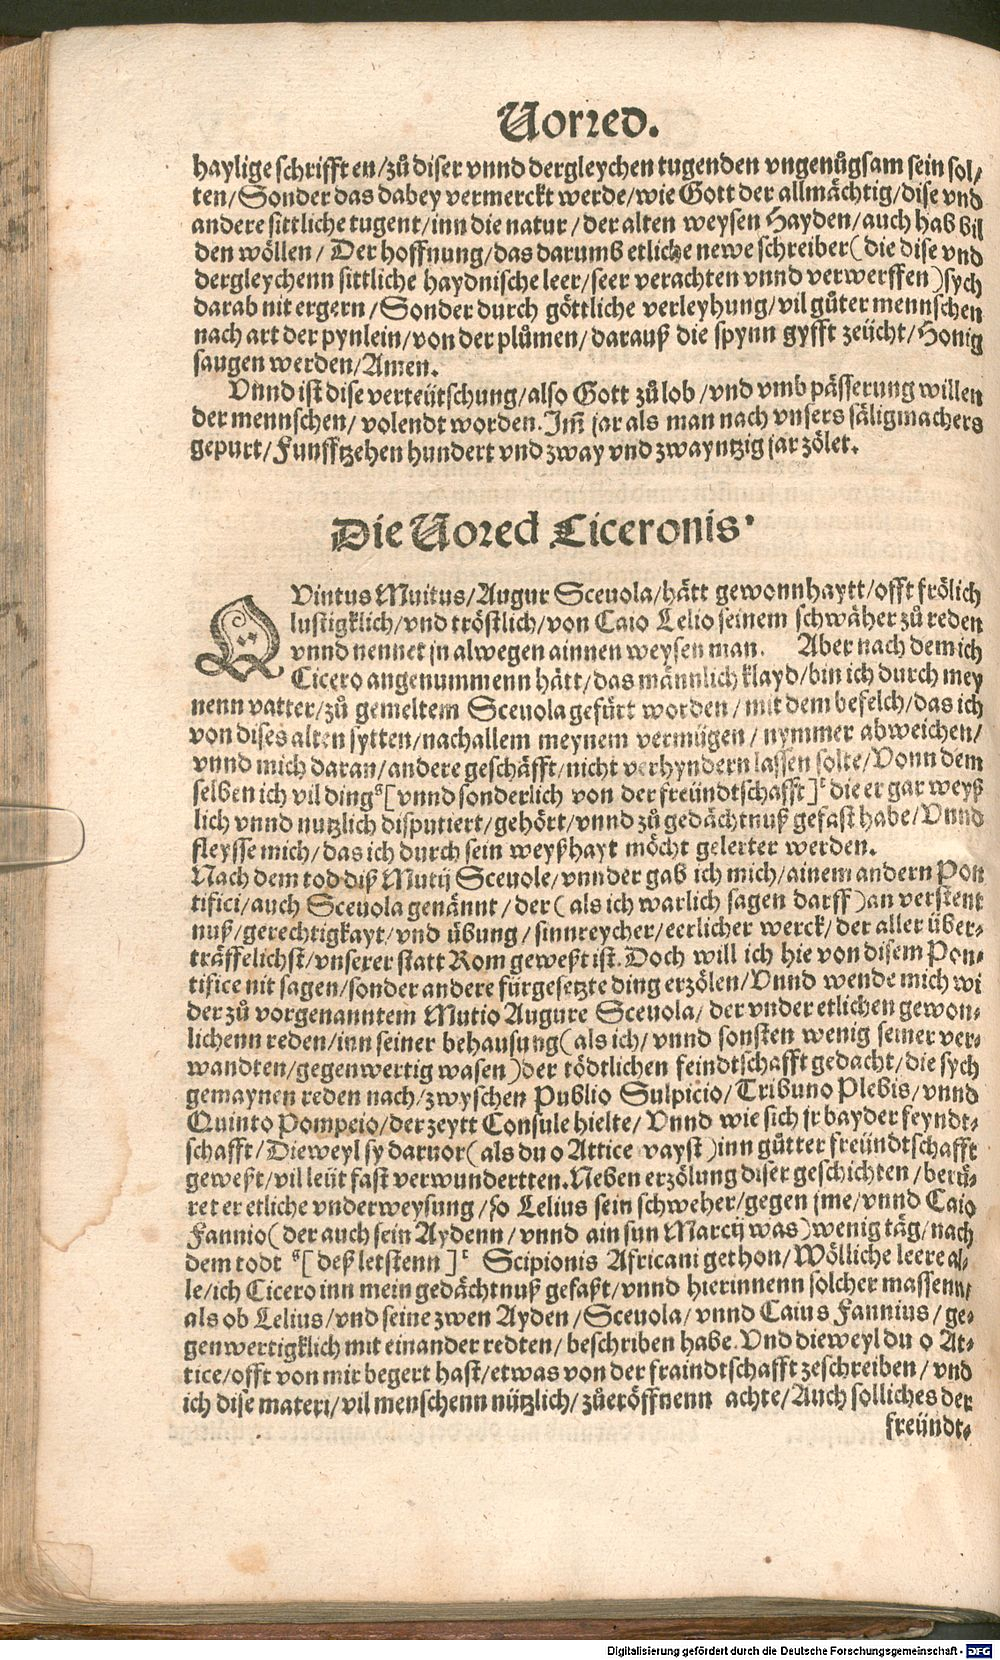 Vorred.
haylige schrifft en/zů diser vnnd dergleychen tugenden vngenůgsam sein sol⸗
ten/Sonder das dabey vermerckt werde/wie Gott der allmächtig/dise vnd
andere sittliche tugent/inn die natur/der alten weysen Hayden/auch hab bil
den wöllen/ Der hoffnung/das darumb etliche newe schreiber( die dise vnd
dergleychenn sittliche haydnische leer/seer verachten vnnd verwerffen)sych
darab nit ergern/Sonder durch göttliche verleyhung/vil gůter mennschen
nach art der pynlein/von der plůmen/darauß die spynn gyfft zeücht/Honig
saugen werden/Amen.
Vnnd ist dise verteütschung/also Gott zů lob/vnd vmb pässerung willen
der mennschen/ volendt worden. Im̃ jar als man nach vnsers säligmachers
gepurt/Funfftzehen hundert vnd zway vnd zwayntzig jar zölet.
Die Vored Ciceronis.
QVintus Mutius/Augur Sceuola/hätt gewonnhaytt/offt frölich
lustigklich/vnd tröstlich/von Caio Lelio seinem schwäher zů reden
vnnd nennet jn alwegen ainnen weysen man. Aber nach dem ich
Cicero angenummenn hätt/das männlich klayd/bin ich durch mey
nenn vatter/zů gemeltem Sceuola gefürt worden/mit dem befelch/das ich
von dises alten sytten/nachallem meynem vermügen/nymmer abweichen/
vnnd mich daran/andere geschäfft/nicht verhyndern lassen solte/Vonn dem
selben ich vil ding ˢ[vnnd sonderlich von der freündtschafft]ᵗ die er gar weyß
lich vnnd nutzlich disputiert/gehört/vnnd zů gedächtnuß gefast habe/Vnnd
fleysse mich/das ich durch sein weyßhayt möcht gelerter werden.
Nach dem tod diß Mutij Sceuole/vnnder gab ich mich/ainem andern Pon
tifici/auch Sceuola genännt/der( als ich warlich sagen darff)an verstent
nuß/gerechtigkayt/vnd übung/sinnreycher/eerlicher werck/der aller über⸗
träffelichst/vnserer statt Rom geweßt ist. Doch will ich hie von disem Pon⸗
tifice nit sagen/sonder andere fürgesetzte ding erzölen/Vnnd wende mich wi
der zů vorgenanntem Mutio Augure Sceuola/der vnder etlichen gewon⸗
lichenn reden/inn seiner behausung(als ich/vnnd sonsten wenig seiner ver⸗
wandten/gegenwertig wasen)der tödtlichen feindtschafft gedacht/die sych
gemaynen reden nach/zwyschen Publio Sulpicio/Tribuno Plebis/vnnd
Quinto Pompeio/der zeytt Consule hielte/Vnnd wie sich jr bayder feyndt⸗
schafft/Dieweyl sy daruor(als du o Attice vayst)inn gůtter freündtschafft
geweßt/vil leüt fast verwundertten. Neben erzölung diser geschichten/berü⸗
ret er etliche vnderweysung/so Lelius sein schweher/gegen jme/vnnd Caio
Fannio(der auch sein Aydenn/vnnd ain sun Marcij was)wenig täg/nach
dem todt ˢ[deß letstenn]ᵗ Scipionis Africani gethon/Wölliche leere al⸗
le/ich Cicero inn mein gedächtnuß gefaßt/vnnd hierinnenn solcher massenn/
als ob Lelius/vnd seine zwen Ayden/Sceuola/vnnd Caius Fannius/ge⸗
genwertigklich mit einander redten/beschriben habe. Vnd dieweyl du o At⸗
tice/offt von mir begert hast/etwas von der fraindtschafft zeschreiben/vnd
ich dise materi/vil menschenn nützlich/zůeröffnenn achte/Auch solliches der
freündt⸗
Digitalisierung gefördert durch die Deutsche Forschungsgemeinschaft - DFG